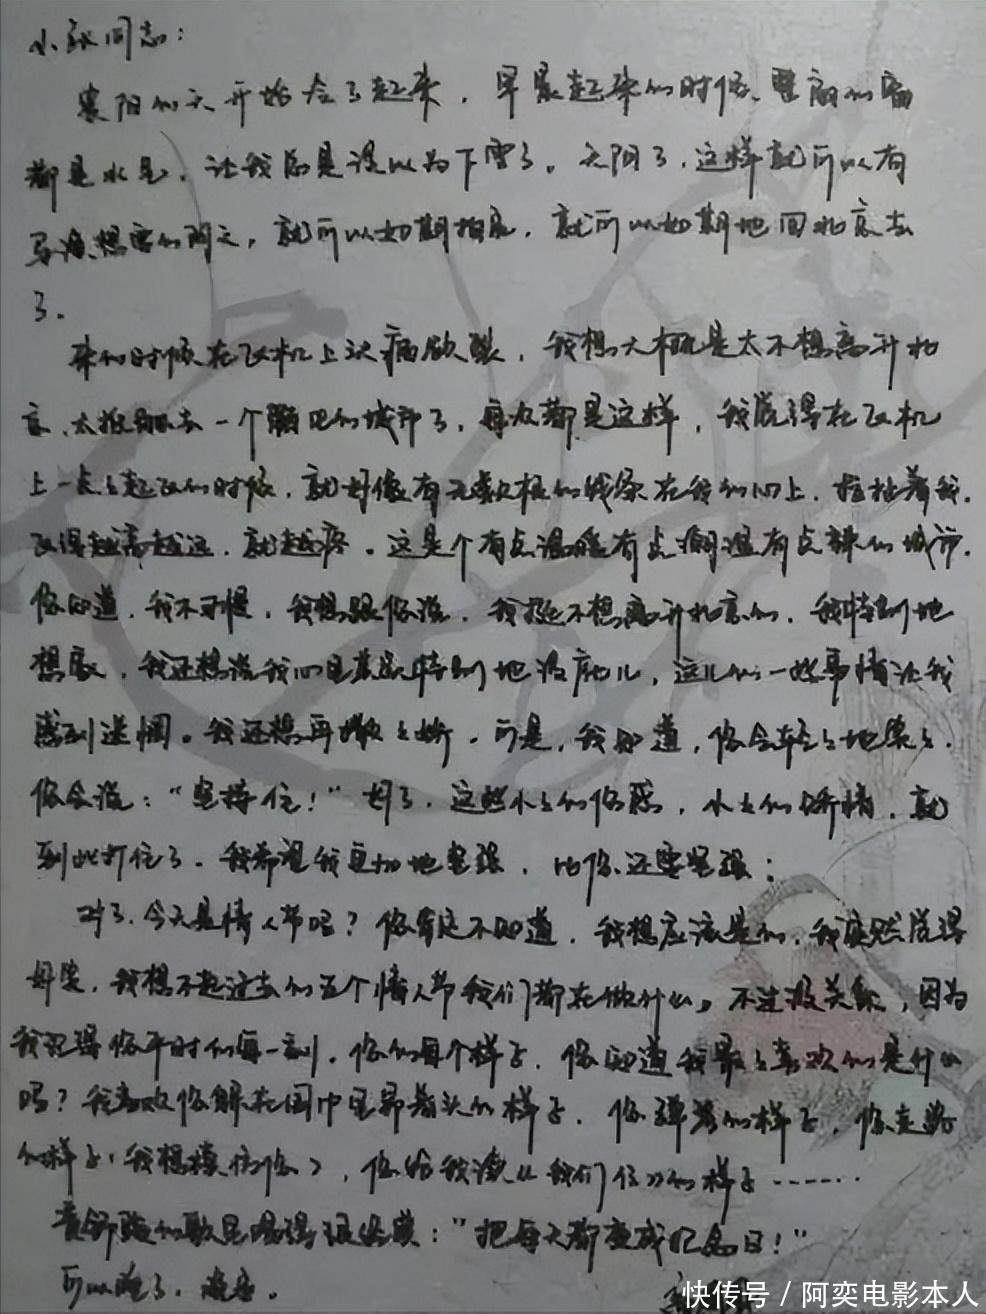 小张同志：
襄阳的天开始冷了起来，早晨起来的时候，整扇的窗
都是水皂，让我总是误以为下雪了。天阴了，这样就可以有
导演想要的阴天，就可以如期拍完，就可以如期地回北京去
了。
来的时候在飞机上头痛欲裂，我想大概是太不想离开北
京，太抵触去一个陌生的城市了，每次都是这样，我觉得在飞机
上一点点起飞的时候，就好像有无数根的线条在我的心上，拉扯着我。
飞得越高越远，就越疼。这是个有点温暖有点潮湿有点辣的城市。
你知道，我不习惯，我想跟你说，我挺不想离开北京的，我特别地
想家，我还想说我心里其实特别地没底儿，这儿的一些事情让我
感到迷惘。我还想再撒撒娇。可是，我知道，你会轻轻地笑笑。
你会说："坚持住！"好了，这些小小的伤感，小小的矫情，就
到此打住了。我希望我更加地坚强，比你还要坚强；
对了，今天是情人节吗？你肯定不知道，我想应该是的，我突然觉得
好笑，我想不起过去的五个情人节我们都在做什么。不过没关系，因为
我记得你平时的每一刻。你的每个样子，你知道我最最喜欢的是什么
吗？我喜欢你躲在围巾里昂着头的样子，你弹琴的样子，你走路
的样子（我想模仿你），你给我读《我们仨》的样子……
黄舒骏的歌里唱得很经典："把每天都变成纪念日！"
可以睡了，晚安。
快传号／阿奕电影本人